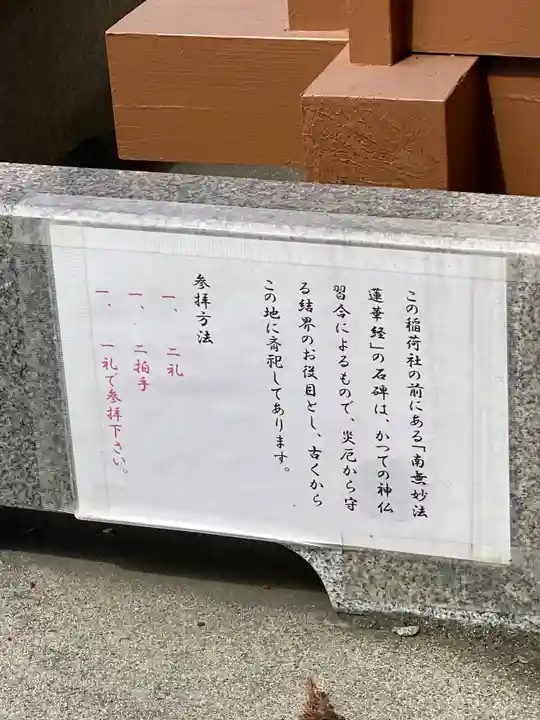 この稲荷社の前にある「南無妙法
蓮華経」の石碑は、かつての神仏
習合によるもので、災厄から守
る結界のお役目とし、古くから
この地に斎祀してあります。
参拝方法
一、二礼
一、二拍手
一、一礼で参拝下さい。